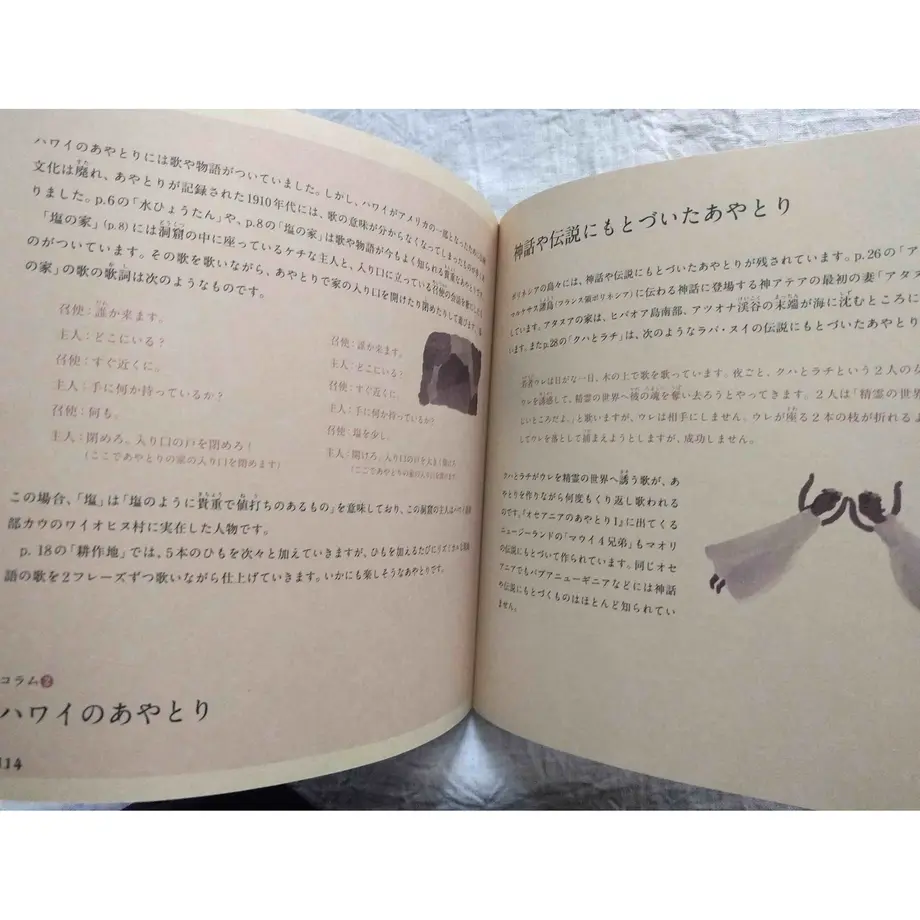 ハワイのあやとりには歌や物語がついていました。しかし、ハワイがアメリカの一部となったため
文化は廃れ、あやとりが記録された1910年代には、歌の意味が分からなくなってしまったものが
りました。p.6の「水ひょうたん」や、p.8の「塩の家」は歌や物語が今もよく知られる貴重なあやとりです。
「塩の家」(p.8)には洞窟の中に座っているケチな主人と、入り口に立っている召使の会話を
のがついています。その歌を歌いながら、あやとりで家の入り口を開けたり閉めたりして遊びます。
の家」の歌の歌詞は次のようなものです。
召使：誰か来ます。
主人：どこにいる？
召使：すぐ近くに。
主人：手に何か持っているか？
召使：何も。
主人：閉めろ。入り口の戸を閉めろ！
（ここであやとりの家の入り口を閉めます）
召使：誰か来ます。
主人：どこにいる？
召使：すぐ近くに。
主人：手に何か持っているか？
召使：塩を少し。
主人：開けろ。入り口の戸を大きく開けろ
（ここであやとりの家の入り口を開けます）
この場合、「塩」は「塩のように貴重で値打ちのあるもの」を意味しており、この洞窟の主人はハワイ
部カウのワイオヒヌ村に実在した人物です。
p. 18の「耕作地」では、5本のひもを次々と加えていきますが、ひもを加えるたびにリズミカルな
語の歌を2フレーズずつ歌いながら仕上げていきます。いかにも楽しそうなあやとりです。
コラム2
ハワイのあやとり
114
神話や伝説にもとづいたあやとり
ポリネシアの島々には、神話や伝説にもとづいたあやとりが残されています。p.26の「ア
マルケサス諸島(フランス領ポリネシア)に伝わる神話に登場する神アテアの最初の妻「アタヌ
しています。アタヌアの家は、ヒバオア島南部、アツオナ渓谷の末端が海に沈むところに
います。またp.28の「クハとラチ」は、次のようなラパ・ヌイの伝説にもとづいたあやとり
若者ウレは日がな一日、木の上で歌を歌っています。夜ごと、クハとラチという2人の
ウレを誘惑して、精霊の世界へ彼の魂を奪い去ろうとやってきます。2人は「精霊の世界
にいところだよ。」と歌いますが、ウレは相手にしません。ウレが座る2本の枝が折れるよ
してウレを落として捕まえようとしますが、成功しません。
クハとラチがウレを精霊の世界へ誘う歌が、あ
やとりを作りながら何度もくり返し歌われる
のです。『オセアニアのあやとり1』に出てくる
ニュージーランドの「マウイ4兄弟」もマオリ
の伝説にもとづいて作られています。同じオセ
アニアでもパプアニューギニアなどには神話
や伝説にもとづくものはほとんど知られてい
ません。